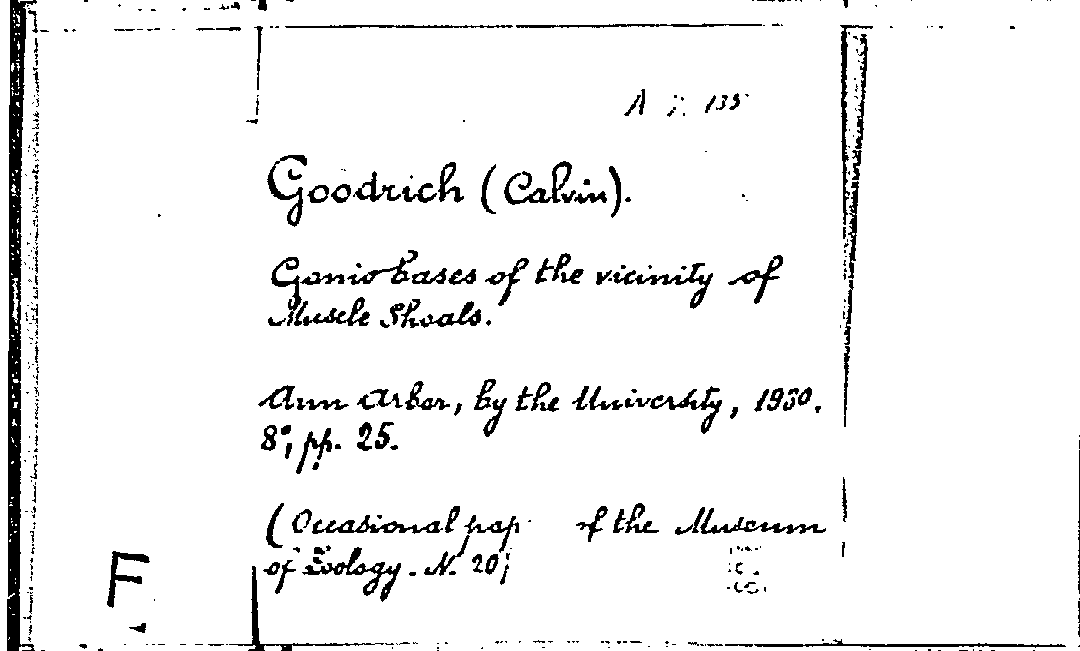 A 135
Goodrich (Calvin).
Goniobases of the vicinity of
Muscle Shoals.
Ann Arbor, by the University, 1930.
8°, pp. 25.
(Occasional pap of the Museum
of Zoology. N. 20
F